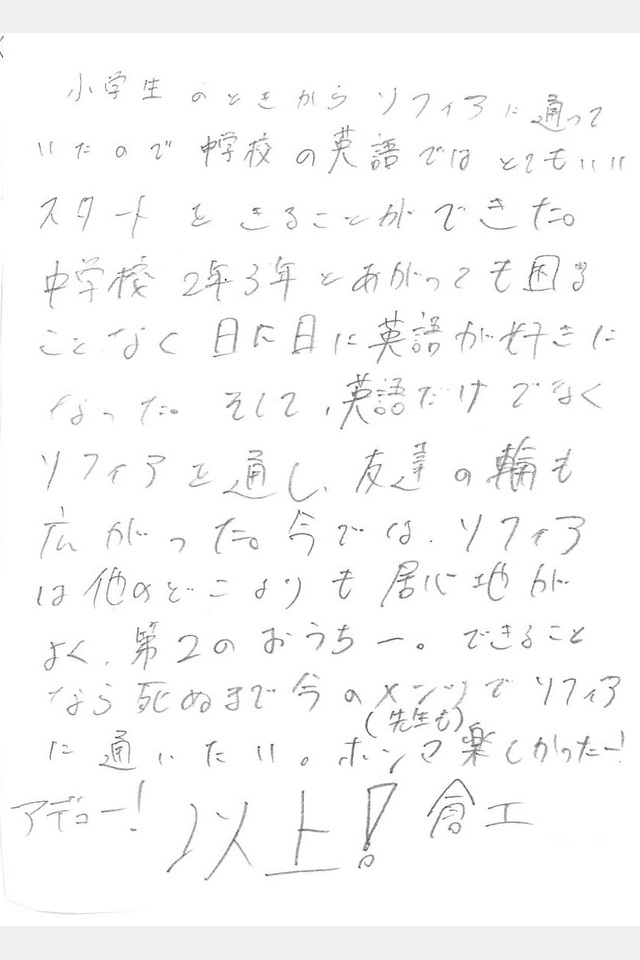 小学生のときからソフィアに通って
いたので中学校の英語ではとてもいい
スタートをきることができた。
中学校2年3年とあがっても困る
ことなく日に日に英語が好きに
なった。そして、英語だけでなく
ソフィアを通し、友達の輪も
広がった。今では、ソフィア
は他のどこよりも居心地が
よく、第2のおうちー。できること
なら死ぬまで今のメンツでソフィア
(先生も)
に通いたい。ホンマ楽しかったー!
アデュー! 以上!